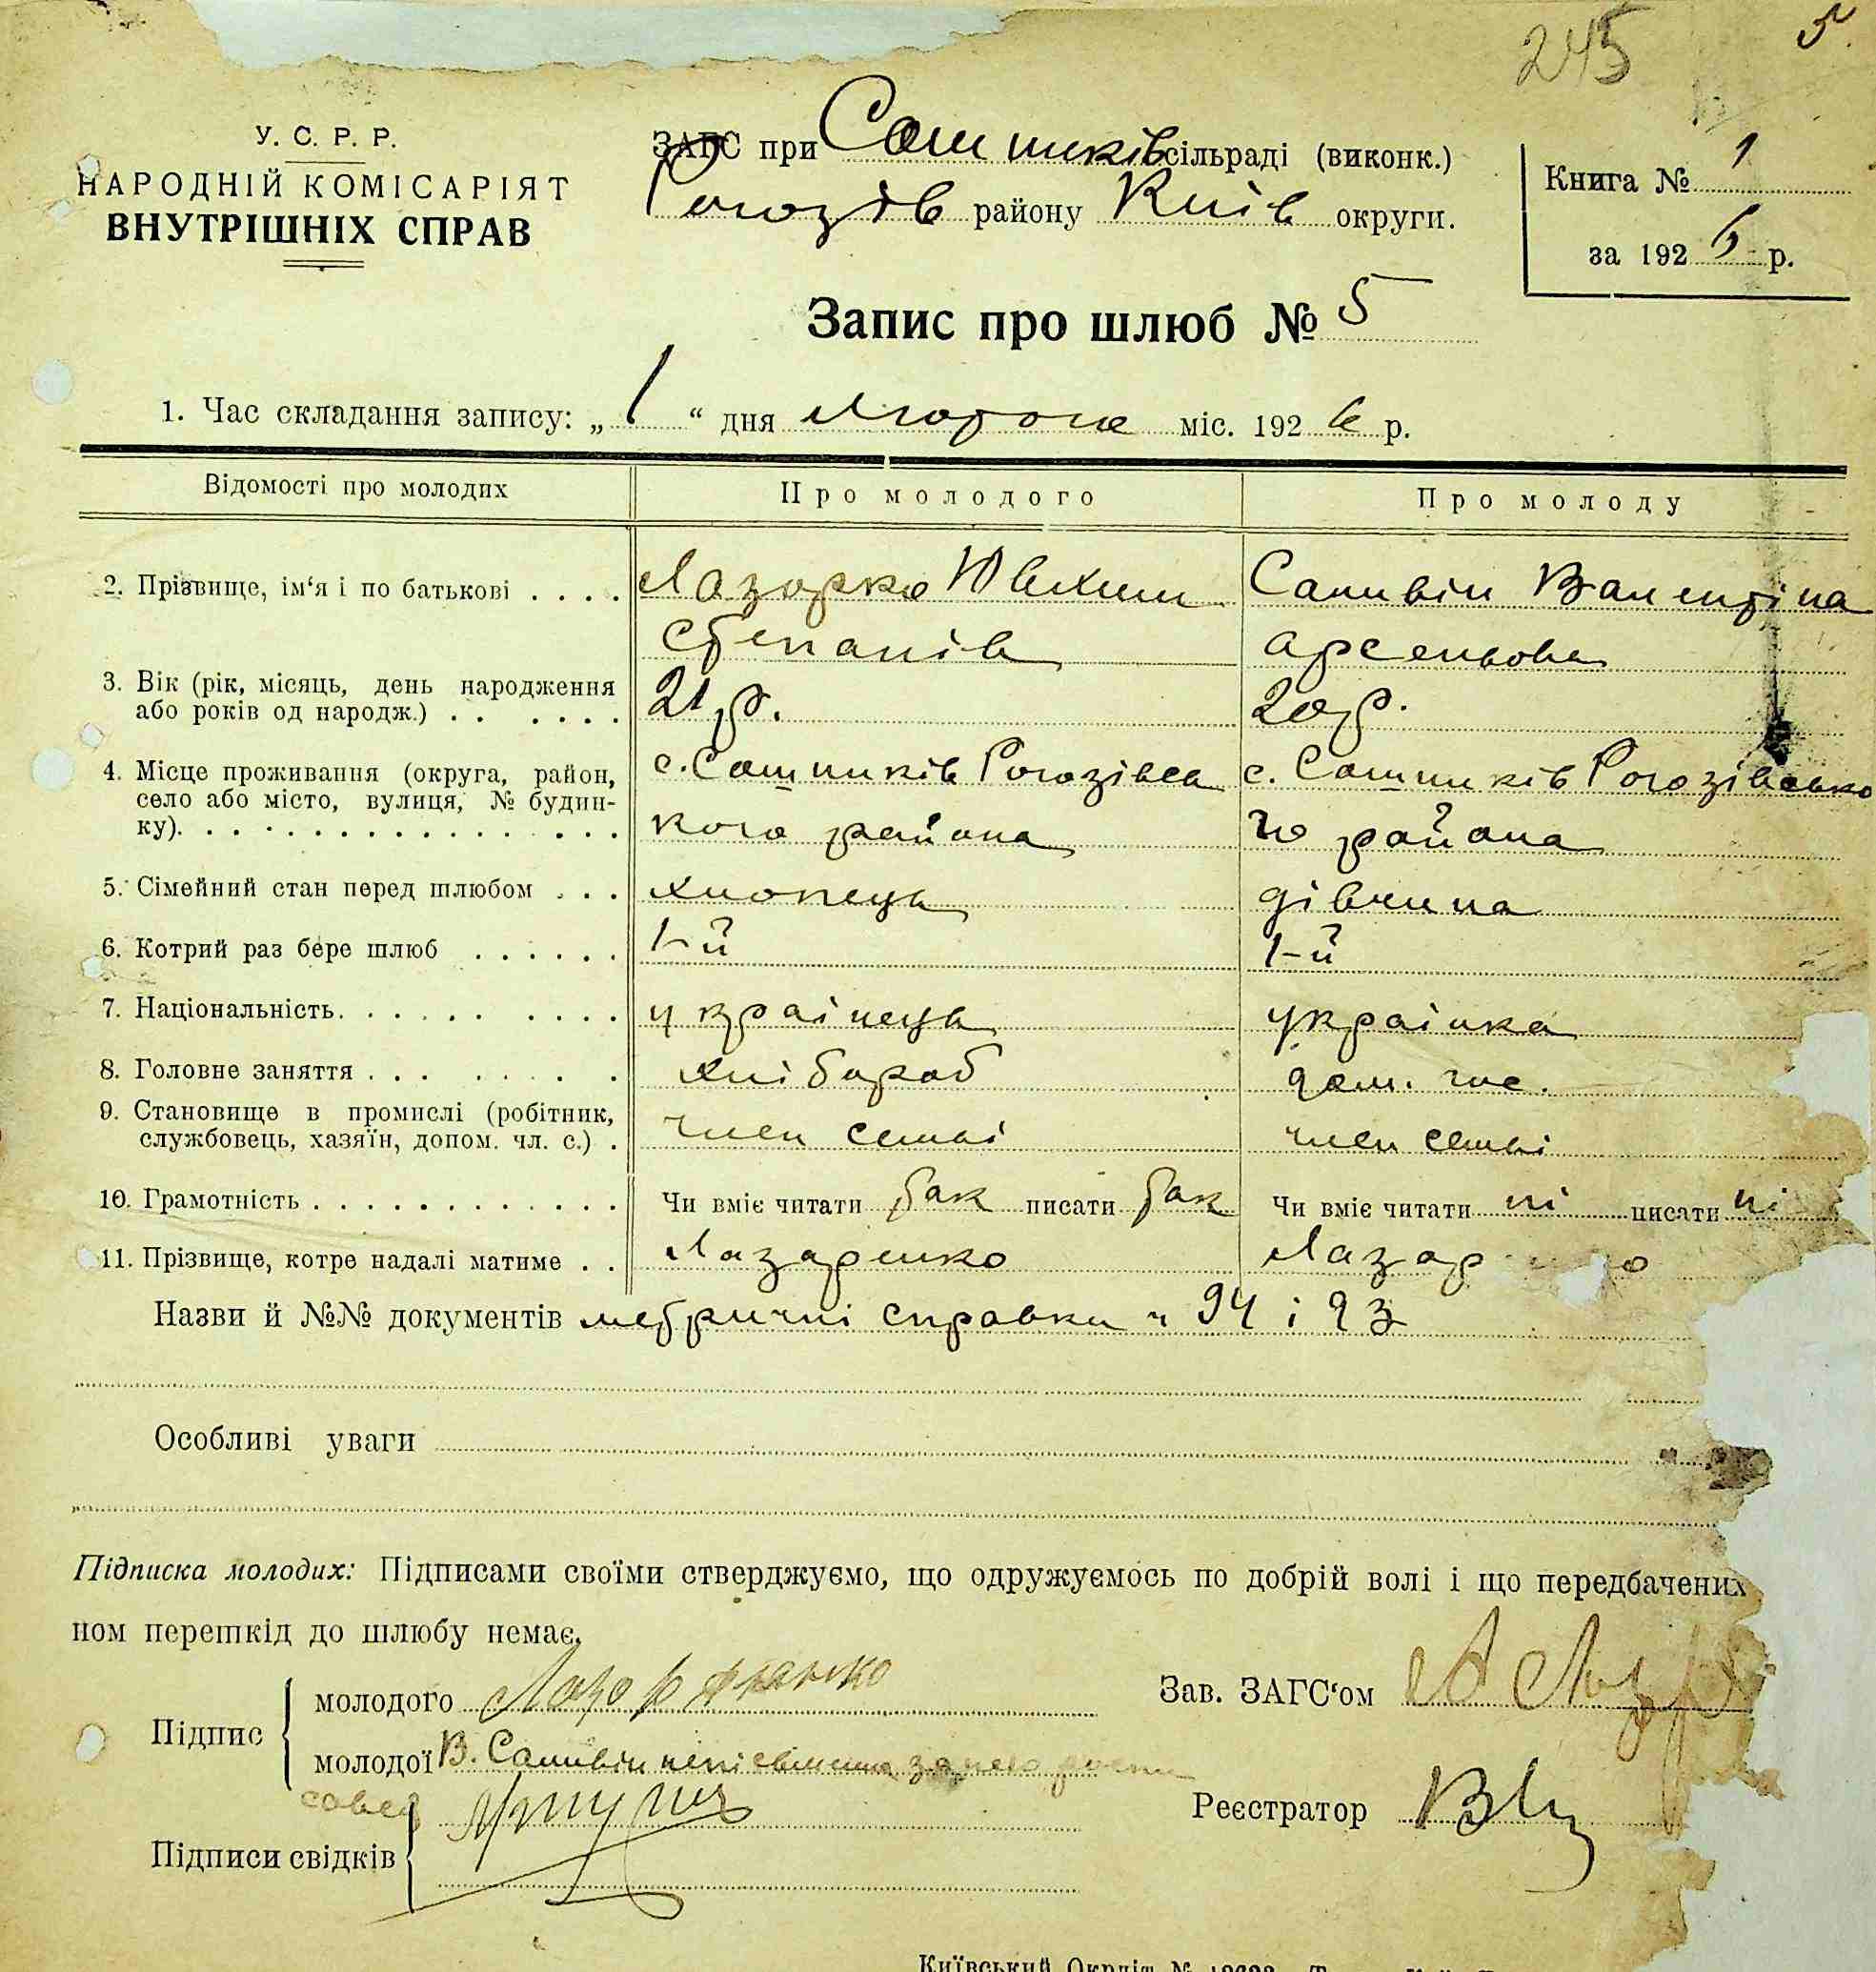 245
5
У. С. Р. Р.
НАРОДНІЙ КОМІСАРІЯТ
ВНУТРІШНІХ СПРАВ
ЗАГС при Сошників сільраді (виконк.)
Рогозів району Київ округи.
Книга № 1
за 1926 р.
Запис про шлюб № 5
1. Час складання запису: „ 1 “ дня лютого міс. 1926 р.
Відомості про молодих
Про молодого
Про молоду
2. Прізвище, ім‘я і по батькові . . . .
Лазорко Юхим
Степанів
Санивін Валентіна
Арсеньова
3. Вік (рік, місяць, день народження
або років од народж.) . . . . . .
21 р.
20 р.
4. Місце проживання (округа, район,
село або місто, вулиця, № будин-
ку). . . . . . . . . . . . . . . .
с. Сошників Рогозівсь
кого района
с. Сошників Рогозівсько
го района
5. Сімейний стан перед шлюбом . . .
хлопець
дівчина
6. Котрий раз бере шлюб . . . . . .
1-й
1-й
7. Національність. . . . . . . . . .
українець
українка
8. Головне заняття . . . . . . . .
хлібороб
дом. гос.
9. Становище в промислі (робітник,
службовець, хазяїн, допом. чл. с.) .
член семьі
член семьі
10. Грамотність . . . . . . . . . . . . .
Чи вміє читати так писати так
Чи вміє читати ні писати ні
11. Прізвище, котре надалі матиме . .
Лазаренко
Лазар о
Назви й №№ документів метричні справки ч 94 і 93
Особливі уваги
Підписка молодих: Підписами своїми стверджуємо, що одружуємось по добрій волі і що передбачених
ном перешкід до шлюбу немає.
Підпис
молодого
молодої В. Санивін неписьменна за нею
Зав. ЗАГС‘ом
Підписи свідків
Реєстратор
Київський Окрліт №